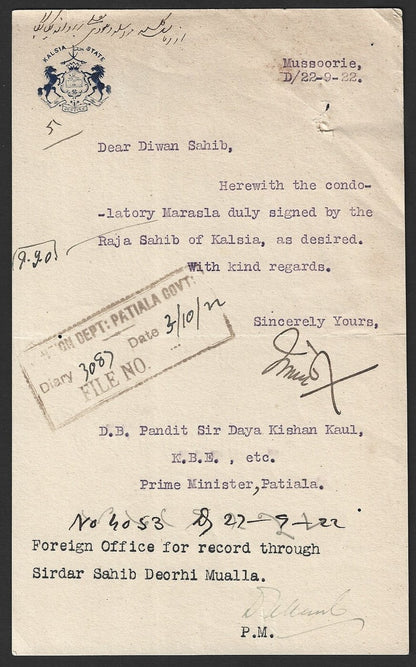 KALSIA STATE
Mussoorie,
D/22-9-22.
5
Dear Diwan Sahib,
Herewith the condo-
-latory Marasla duly signed by the
Raja Sahib of Kalsia, as desired.
With kind regards.
Sincerely Yours,
GN DEPT: PATIALA GOVT:
Diary 3087 Date 3/10/22
FILE NO.
D.B. Pandit Sir Daya Kishan Kaul,
K.B.E. , etc.
Prime Minister, Patiala.
No 4053 D/ 27-9-22
Foreign Office for record through
Sirdar Sahib Deorhi Mualla.
P.M.